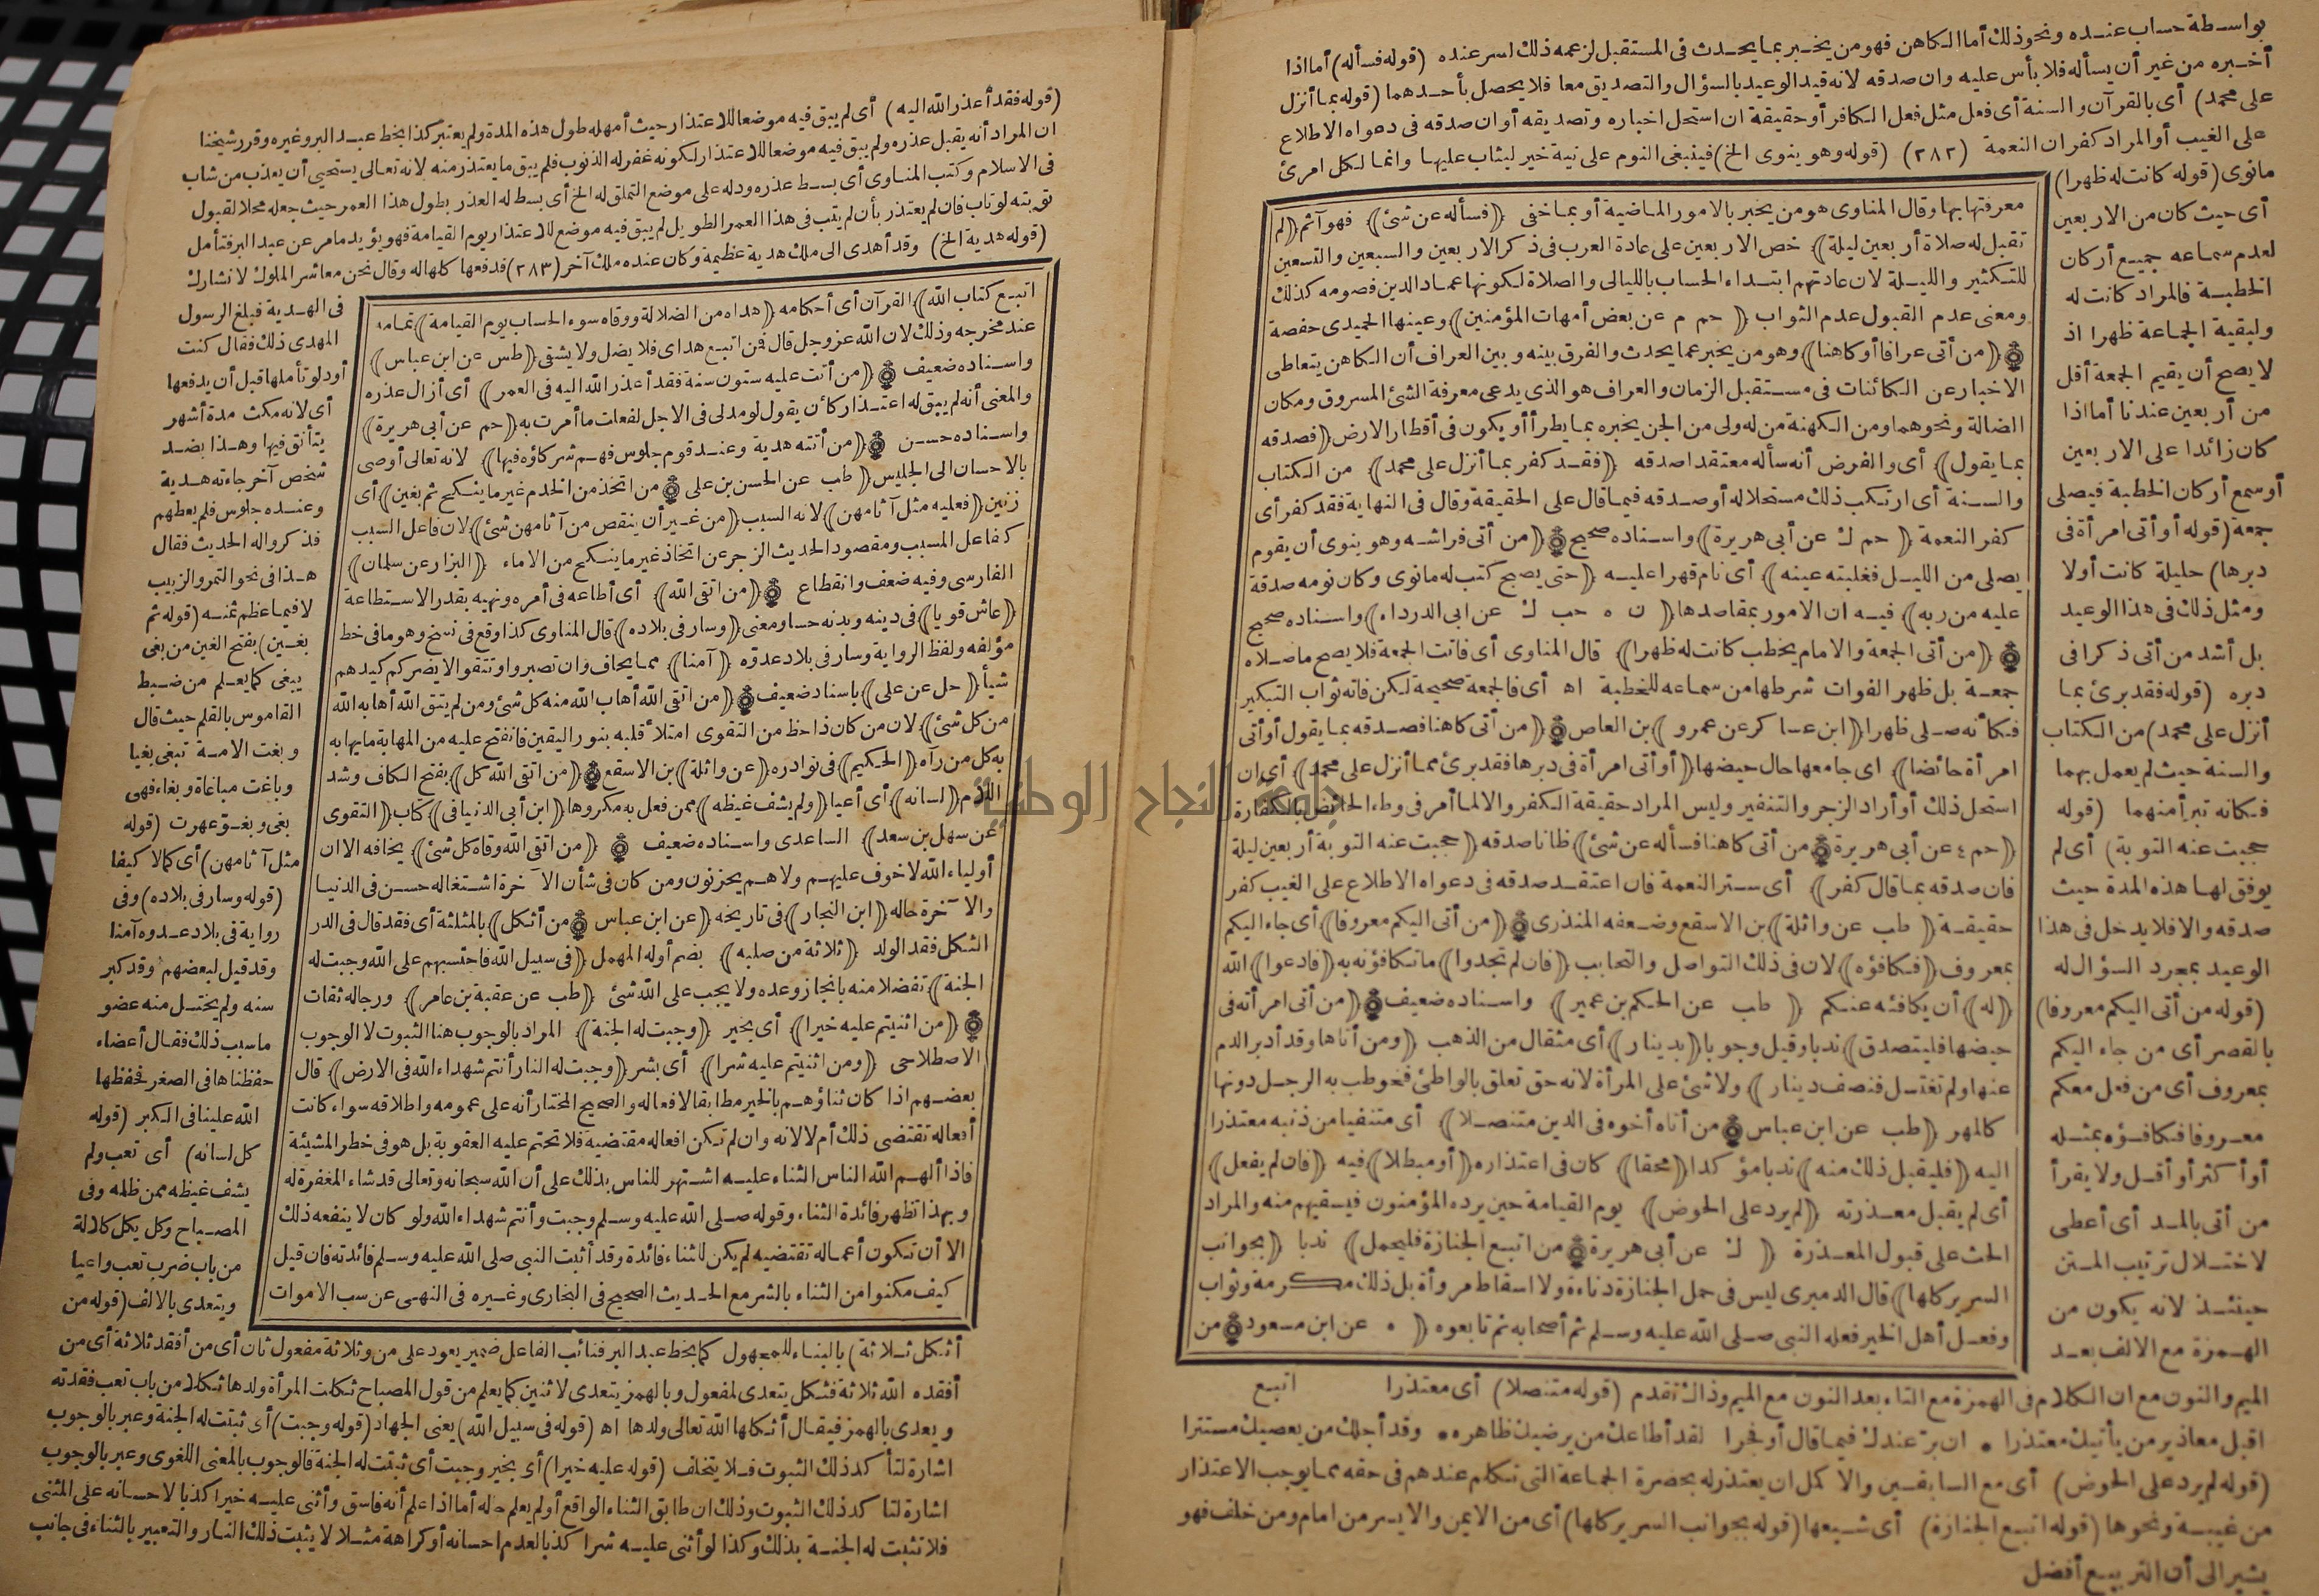 بواسطة حساب عنده ونحو ذلك أما الكاهن فهو من يخبر بما يحدث في المستقبل لزعمه ذلك لسر عنده (قوله فسأله) أما اذا
أخبره من غير أن يسأله فلا بأس عليه وان صدقه لانه قيد الوعيد بالسؤال والتصديق معا فلا يحصل بأحدهما (قوله بما أنزل
على محمد) أي بالقرآن والسنة أي فعل مثل فعل الكافر أو حقيقة ان استحل اخباره وتصديقه أو ان صدقه في دعواه الاطلاع
على الغيب أو المراد كفران النعمة (٢٨٢) (قوله وهو ينوى الخ) فينبغي النوم على نية خير ليثاب عليها وانما لكل امرئ
مانوى (قوله كانت له ظهرا)
أي حيث كان من الاربعين
لعدم سماعه جميع أركان
الخطبة فالمراد كانت له
ولبقية الجماعة ظهرا اذ
لا يصح أن يقيم الجمعة أقل
من أربعين عندنا أما اذا
كان زائدا على الاربعين
أو سمع أركان الخطبة فيصلى
جمعة (قوله أو أتى امرأة في
دبرها) حليلة كانت أولا
ومثل ذلك في هذا الوعيد
بل أشد من أتى ذكرا في
دبره (قوله فقد برئ بما
أنزل على محمد) من الكتاب
والسنة حيث لم يعمل بهما
فكانه تبرأ منهما (قوله
حجبت عنه التوبة) أي لم
يوفق لها هذه المدة حيث
صدقه والا فلا يدخل في هذا
الوعيد بمجرد السؤال له
(قوله من أتى اليكم معروفا)
بالقصر أي من جاء اليكم
بمعروف أي من فعل معكم
معروفا فكافؤه بمثله
أو أكثر أو أقل ولا يقرأ
من أتى بالمد أي أعطى
لاختلال ترتيب المتن
حينئذ لانه يكون من
الهمزة مع الالف بعد
معرفتها بها وقال المناوى هو من يخبر بالامور الماضية أو بما خفى ((فسأله عن شئ)) فهو آثم ((لم
تقبل له صلاة أربعين ليلة)) خص الاربعين على عادة العرب في ذكر الاربعين والسبعين والتسعين
للتكثير والليلة لان عادتهم ابتداء الحساب بالليالى والصلاة لكونها عماد الدين فصومه كذلك
ومعنى عدم القبول عدم الثواب ((حم م عن بعض أمهات المؤمنين)) وعينها الحميدى حفصة
((من أتى عرافا أو كاهنا)) وهو من يخبر عما يحدث والفرق بينه وبين العراف أن الكاهن يتعاطى
الاخبار عن الكائنات في مستقبل الزمان والعراف هو الذى يدعى معرفة الشئ المسروق ومكان
الضالة ونحوهما ومن الكهنة من له ولى من الجن يخبره بما يطرأ أو يكون في أقطار الارض ((فصدقه
بما يقول)) أي والفرض أنه سأله معتقدا صدقه ((فقد كفر بما أنزل على محمد)) من الكتاب
والسنة أي ارتكب ذلك مستحلا له أو صدقه فيما قال على الحقيقة وقال في النهاية فقد كفر أي
كفر النعمة ((حم ك عن أبى هريرة)) واسناده صحيح ((من أتى فراشه وهو ينوى أن يقوم
يصلى من الليل فغلبته عينه)) أي نام قهرا عليه ((حتى يصبح كتب له مانوى وكان نومه صدقة
عليه من ربه)) فيه ان الامور بمقاصدها ((ن ه حب ك عن ابى الدرداء)) واسناده صحيح
((من أتى الجمعة والامام يخطب كانت له ظهرا)) قال المناوى أي فاتت الجمعة فلا يصح ماصلاه
جمعة بل ظهر الفوات شرطها من سماعه للخطبة اه أي فالجمعة صحيحة لكن فاته ثواب التبكير
فكأنه صلى ظهرا ((ابن عساكر عن عمرو)) بن العاص ((من أتى كاهنا فصدقه بما يقول أو أتى
امرأة حائضا)) اى جامعها حال حيضها ((أو أتى امرأة في دبرها فقد برئ مما أنزل على محمد)) أي ان
استحل ذلك أو أراد الزجر والتنفير وليس المراد حقيقة الكفر والا لما أمر في وطء الحائض بالكفارة
((حم ٤ عن أبى هريرة من أتى كاهنا فسأله عن شئ)) ظانا صدقه ((حجبت عنه التوبة أربعين ليلة
فان صدقه بما قال كفر)) أي ستر النعمة فان اعتقد صدقه في دعواه الاطلاع على الغيب كفر
حقيقة ((طب عن واثلة)) بن الاسقع وضعفه المنذرى ((من أتى اليكم معروفا)) أي جاء اليكم
بمعروف ((فكافؤه)) لان في ذلك التواصل والتحابب ((فان لم تجدوا)) ما تكافؤنه به ((فادعوا)) الله
((له)) أن يكافئه عنكم ((طب عن الحكم بن عمير)) واسناده ضعيف ((من أتى امرأته في
حيضها فليتصدق)) ندبا وقيل وجوبا ((بدينار)) أي مثقال من الذهب ((ومن أتاها وقد أدبر الدم
عنها ولم تغتسل فنصف دينار)) ولا شئ على المرأة لانه حق تعلق بالواطئ فخوطب به الرجل دونها
كالمهر ((طب عن ابن عباس من أتاه أخوه في الدين متنصلا)) أي متنفيا من ذنبه معتذرا
اليه ((فليقبل ذلك منه)) ندبا مؤكدا ((محقا)) كان في اعتذاره ((أو مبطلا)) فيه ((فان لم يفعل))
أي لم يقبل معذرته ((لم يرد على الحوض)) يوم القيامة حين يرده المؤمنون فيسقيهم منه والمراد
الحث على قبول المعذرة ((ك عن أبى هريرة من اتبع الجنازة فليحمل)) ندبا ((بجوانب
السرير كلها)) قال الدميرى ليس في حمل الجنازة دناءة ولا اسقاط مروأة بل ذلك مكرمة وثواب
وفعل أهل الخير فعله النبى صلى الله عليه وسلم ثم أصحابه ثم تابعوه ((ه عن ابن مسعود من
اتبع
الميم والنون مع ان الكلام في الهمزة مع التاء بعد النون مع الميم وذاك تقدم (قوله متنصلا) أي معتذرا
اقبل معاذير من يأتيك معتذرا • ان بر عندك فيما قال أو فجرا لقد أطاعك من يرضيك ظاهره • وقد أجلك من يعصيك مستترا
(قوله لم يرد على الحوض) أي مع السابقين والا كمل ان يعتذر له بحضرة الجماعة التى تكلم عندهم في حقه مما يوجب الاعتذار
من غيبة ونحوها (قوله اتبع الجنازة) أي شيعها (قوله بجوانب السرير كلها) أي من الايمن والايسر من امام ومن خلف فهو
يشير الى أن التربيع أفضل
(قوله فقد أعذر الله اليه) أي لم يبق فيه موضعا للاعتذار حيث أمهله طول هذه المدة ولم يعتبر كذا بخط عبد البر وغيره وقرر شيخنا
ان المراد أنه يقبل عذره ولم يبق فيه موضعا للاعتذار لكونه غفر له الذنوب فلم يبق ما يعتذر منه لانه تعالى يستحيى أن يعذب من شاب
في الاسلام وكتب المناوى أي بسط عذره ودله على موضع التملق له الخ أي بسط له العذر بطول هذا العمر حيث جعله محلا لقبول
توبته لو تاب فان لم يعتذر بأن لم يتب في هذا العمر الطويل لم يبق فيه موضع للاعتذار يوم القيامة فهو يؤيد مامر عن عبد البر فتأمل
(قوله هدية الخ) وقد أهدى الى ملك هدية عظيمة وكان عنده ملك آخر (٢٨٣) فدفعها كلها له وقال نحن معاشر الملوك لا نشارك
في الهدية فبلغ الرسول
المهدى ذلك فقال كنت
أود لو تأملها قبل أن يدفعها
أي لانه مكث مدة أشهر
يتأنق فيها وهذا بضد
شخص آخر جاءته هدية
وعنده جلوس فلم يعطهم
فذكروا له الحديث فقال
هذا في نحو التمر والزبيب
لا فيما عظم ثمنه (قوله ثم
بغين) بفتح الغين من بغى
يبغى كما يعلم من ضبط
القاموس بالقلم حيث قال
وبغت الامة تبغى بغيا
وباغت مباغاة وبغاء فهى
بغى وبغو عهرت (قوله
مثل آثامهن) أي كمالا كيفا
(قوله وسار في بلاده) وفى
رواية في بلاد عدوه آمنا
وقد قيل لبعضهم وقد كبر
سنه ولم يختل منه عضو
ما سبب ذلك فقال أعضاء
حفظناها في الصغر فحفظها
الله علينا في الكبر (قوله
كل لسانه) أي تعب ولم
يشف غيظه ممن ظلمه وفى
المصباح وكل يكل كلالة
من باب ضرب تعب واعيا
ويتعدى بالالف (قوله من
اتبع كتاب الله)) القرآن أي أحكامه ((هداه من الضلالة ووقاه سوء الحساب يوم القيامة)) تمامه
عند مخرجه وذلك لان الله عز وجل قال فمن اتبع هداى فلا يضل ولا يشقى ((طس عن ابن عباس))
واسناده ضعيف ((من أتت عليه ستون سنة فقد أعذر الله اليه في العمر)) أي أزال عذره
والمعنى أنه لم يبق له اعتذار كأن يقول لو مد لى في الاجل لفعلت ما أمرت به ((حم عن أبى هريرة))
واسناده حسن ((من أتته هدية وعنده قوم جلوس فهم شركاؤه فيها)) لانه تعالى أوصى
بالاحسان الى الجليس ((طب عن الحسن بن على من اتخذ من الخدم غير ما ينكح ثم بغين)) أي
زنين ((فعليه مثل آثامهن)) لانه السبب ((من غير أن ينقص من آثامهن شئ)) لان فاعل السبب
كفاعل المسبب ومقصود الحديث الزجر عن اتخاذ غير ما ينكح من الاماء ((البزار عن سلمان))
الفارسى وفيه ضعف وانقطاع ((من اتقى الله)) أي أطاعه في أمره ونهيه بقدر الاستطاعة
((عاش قويا)) في دينه وبدنه حسا ومعنى ((وسار في بلاده)) قال المناوى كذا وقع في نسخ وهو ما في خط
مؤلفه ولفظ الرواية وسار في بلاد عدوه ((آمنا)) مما يخاف وان تصبروا وتتقوا لا يضركم كيدهم
شيأ ((حل عن على)) باسناد ضعيف ((من اتقى الله أهاب الله منه كل شئ ومن لم يتق الله أهابه الله
من كل شئ)) لان من كان ذا حظ من التقوى امتلأ قلبه بنور اليقين فانفتح عليه من المهابة ما يهابه
به كل من رآه ((الحكيم)) في نوادره ((عن واثلة)) بن الاسقع ((من اتقى الله كل)) بفتح الكاف وشد
اللام ((لسانه)) أي أعيا ((ولم يشف غيظه)) ممن فعل به مكروها ((ابن أبى الدنيا في)) كتاب ((التقوى
عن سهل بن سعد)) الساعدى واسناده ضعيف ((من اتقى الله وقاه كل شئ)) يخافه الا ان
أولياء الله لا خوف عليهم ولا هم يحزنون ومن كان في شأن الآخرة اشتغاله حسن في الدنيا
والآخرة حاله ((ابن النجار)) في تاريخه ((عن ابن عباس من أثكل)) بالمثلثة أي فقد قال في الدر
الثكل فقد الولد ((ثلاثة من صلبه)) بضم أوله المهمل ((في سبيل الله فاحتسبهم على الله وجبت له
الجنة)) تفضلا منه بانجاز وعده ولا يجب على الله شئ ((طب عن عقبة بن عامر)) ورجاله ثقات
((من اثنيتم عليه خيرا)) أي بخير ((وجبت له الجنة)) المراد بالوجوب هنا الثبوت لا الوجوب
الاصطلاحى ((ومن اثنيتم عليه شرا)) أي بشر ((وجبت له النار أنتم شهداء الله في الارض)) قال
بعضهم اذا كان ثناؤهم بالخير مطابقا لافعاله والصحيح المختار أنه على عمومه واطلاقه سواء كانت
أفعاله تقتضى ذلك أم لا لانه وان لم تكن افعاله مقتضية فلا تحتم عليه العقوبة بل هو في خطر المشيئة
فاذا ألهم الله الناس الثناء عليه اشتهر للناس بذلك على أن الله سبحانه وتعالى قد شاء المغفرة له
وبهذا تظهر فائدة الثناء وقوله صلى الله عليه وسلم وجبت وأنتم شهداء الله ولو كان لا ينفعه ذلك
الا أن تكون أعماله تقتضيه لم يكن للثناء فائدة وقد أثبت النبى صلى الله عليه وسلم فائدته فان قيل
كيف مكنوا من الثناء بالشر مع الحديث الصحيح في البخارى وغيره في النهى عن سب الاموات
أثكل ثلاثة) بالبناء للمجهول كما بخط عبد البر فنائب الفاعل ضمير يعود على من وثلاثة مفعول ثان أي من أفقد ثلاثة أي من
أفقده الله ثلاثة فثكل يتعدى لمفعول وبالهمز يتعدى لاثنين كما يعلم من قول المصباح ثكلت المرأة ولدها ثكلا من باب تعب فقدته
ويعدى بالهمز فيقال أثكلها الله تعالى ولدها اه (قوله في سبيل الله) يعنى الجهاد (قوله وجبت) أي ثبتت له الجنة وعبر بالوجوب
اشارة لتأكد ذلك الثبوت فلا يتخلف (قوله عليه خيرا) أي بخير وجبت أي ثبتت له الجنة فالوجوب بالمعنى اللغوى وعبر بالوجوب
اشارة لتأكد ذلك الثبوت وذلك ان طابق الثناء الواقع أو لم يعلم حاله أما اذا علم أنه فاسق وأثنى عليه خيرا كذبا لاحسانه على المثنى
فلا تثبت له الجنة بذلك وكذا لو أثنى عليه شرا كذبا لعدم احسانه أو كراهة مثلا لا يثبت ذلك النار والتعبير بالثناء في جانب
جامعة النجاح الوطنية